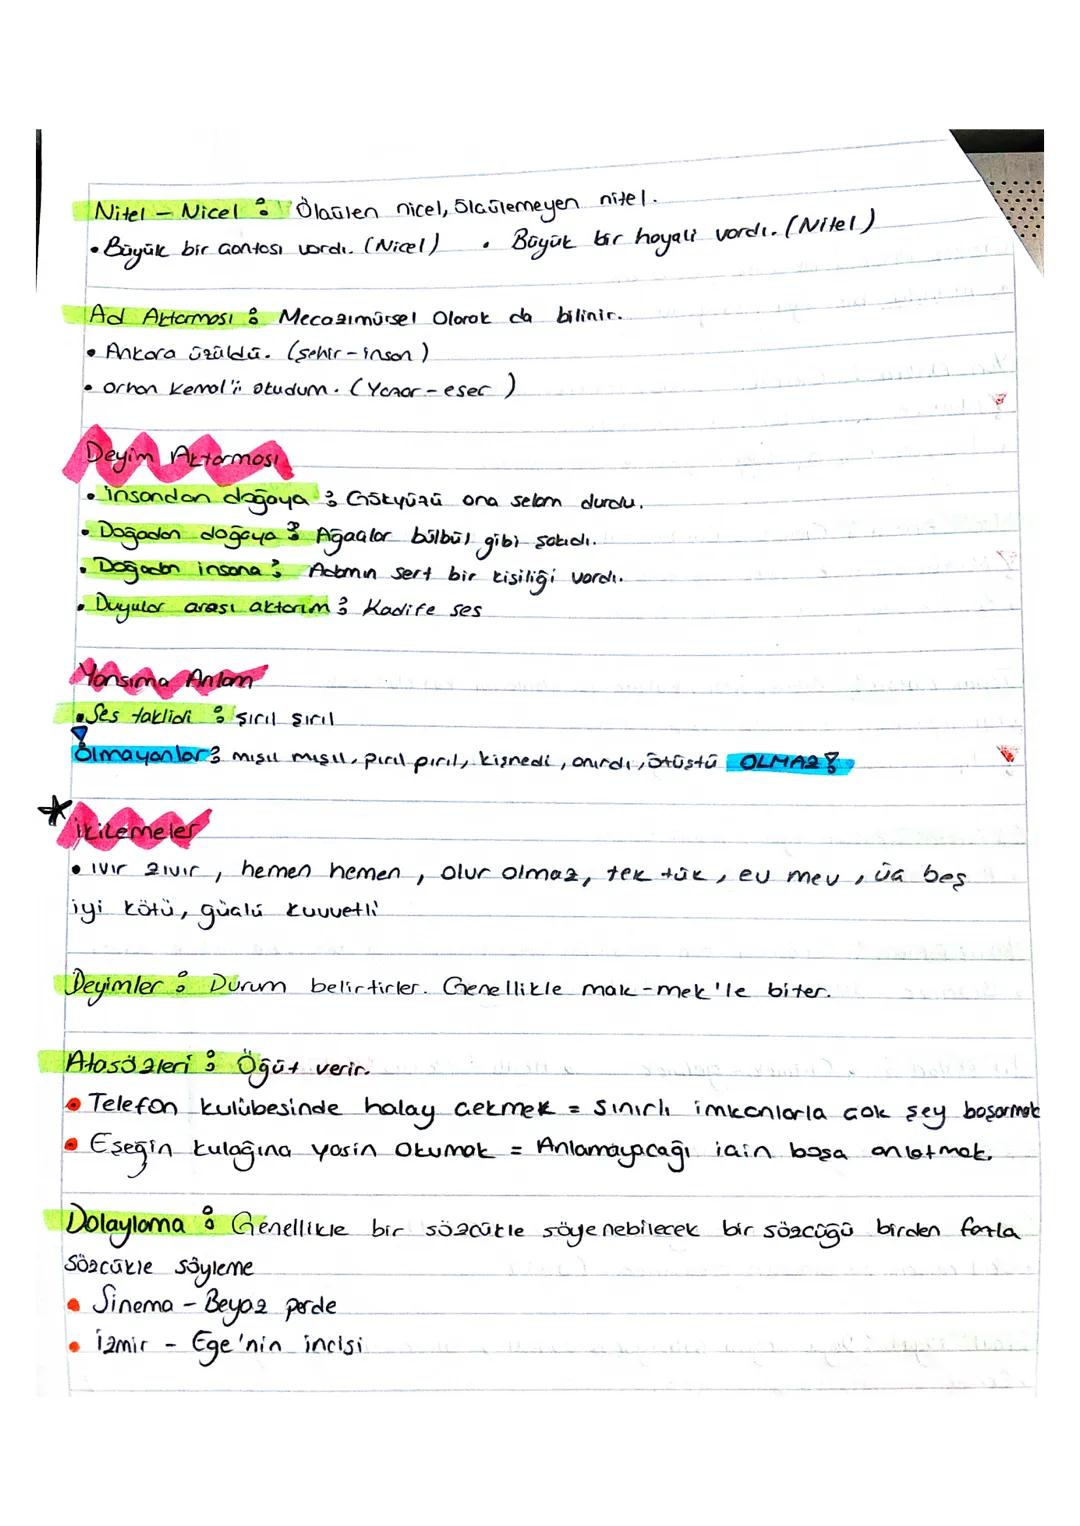 Nitel - Nicel : Ölçülen nicel, ölçülemeyen nitel.
• Büyük bir çantası vardı. (Nicel) • Büyük bir hayali vardı. (Nitel)
Ad Aktarması : Mecazımürsel Olarak da bilinir.
• Ankara üzüldü. (şehir - insan)
• Orhan Kemal'i okudum. (Yazar - eser)
Deyim Aktarması
• İnsandan doğaya : Gökyüzü ona selam durdu.
• Doğadan doğaya : Ağaçlar bülbül gibi şakıdı.
• Doğadan insana : Adamın sert bir kişiliği vardı.
• Duyular arası aktarım : Kadife ses
Yansıma Anlam
• Ses taklidi : şırıl şırıl
Olmayanlar : mışıl mışıl, pırıl pırıl, kişnedi, anırdı, ötüştü OLMAZ!
* İkilemeler
• ıvır zıvır, hemen hemen, olur olmaz, tek tük, ev mev, üç beş
iyi kötü, güçlü kuvvetli
Deyimler : Durum belirtirler. Genellikle mak-mek'le biter.
Atasözleri : Öğüt verir.
• Telefon kulübesinde halay çekmek = Sınırlı imkanlarla çok şey başarmak
• Eşeğin kulağına yasin okumak = Anlamayacağı için boşa anlatmak.
Dolaylama : Genellikle bir sözcükle söyenebilecek bir sözcüğü birden fazla
sözcükle söyleme
• Sinema - Beyaz perde
• İzmir - Ege'nin incisi